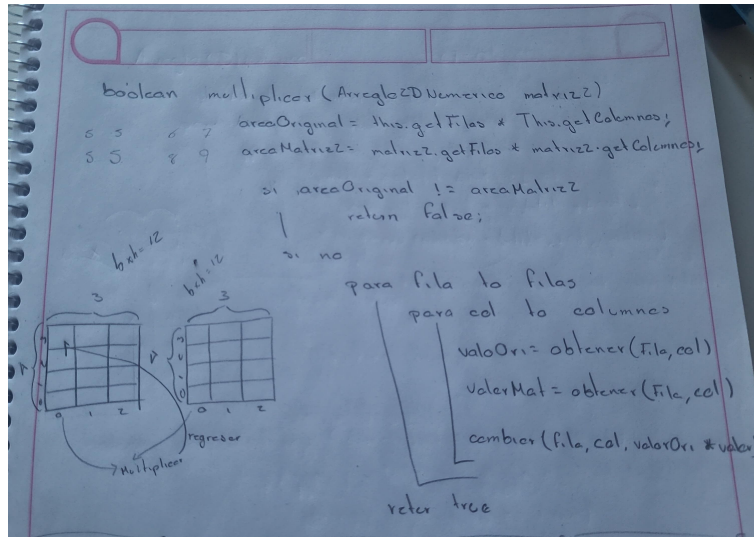 boolean multiplicar (Arreglo2DNumerico matriz2)
5 5 6 7
areaOriginal = this.getFilas * This.getColumnas;
5 5 8 9
areaMatriz2 = matriz2.getFilas * matriz2.getColumnas;
si areaOriginal != areaMatriz2
return false;
si no
para fila to filas
para col to columnas
valoOri = obtener(fila, col)
valorMat = obtener(Fila, col)
cambiar(fila, col, valorOri * valor
retur true
bxh = 12
bxh = 12
3
3
4
4
3
2
1
0
3
2
1
0
0 1 2
0 1 2
regresar
Multiplicar